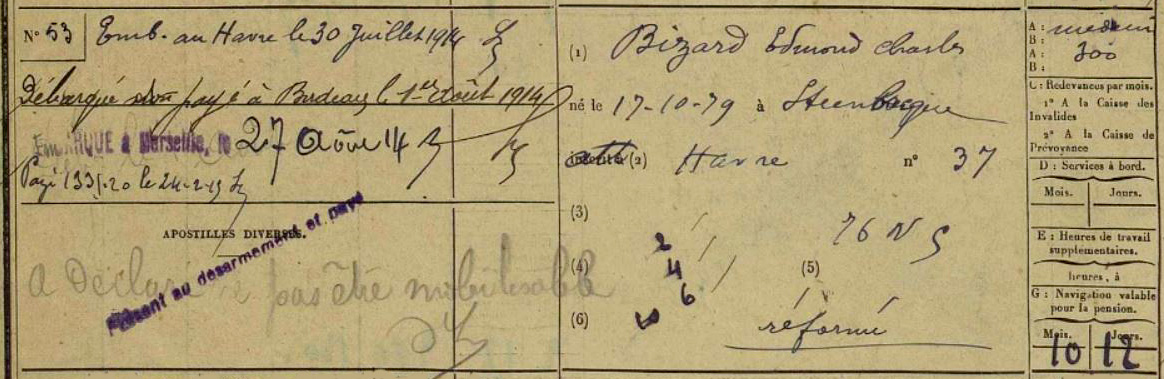 N° 53 Emb. au Havre le 30 Juillet 1914
Débarqué non payé à Bordeaux le 1er Août 1914
EMBARQUÉ à Marseille, le 27 Août 14
Payé 1335.20 le 24-2-15
APOSTILLES DIVERSES.
Présent au désarmement et payé
a Déclaré ne pas être mobilisable
(1) Bizard Edmond Charles
né le 17-10-79 à Steenbecque
(2) Havre n° 37
(3)
76 N S
2
(4) 4 (5)
6
(6) réformé
A : médecin
B :
A : 300
B :
C : Redevances par mois.
1° A la Caisse des
Invalides
2° A la Caisse de
Prévoyance
D : Services à bord.
Mois. Jours.
E : Heures de travail
supplémentaires.
heures, à
G : Navigation valable
pour la pension.
Mois. Jours.
10 12